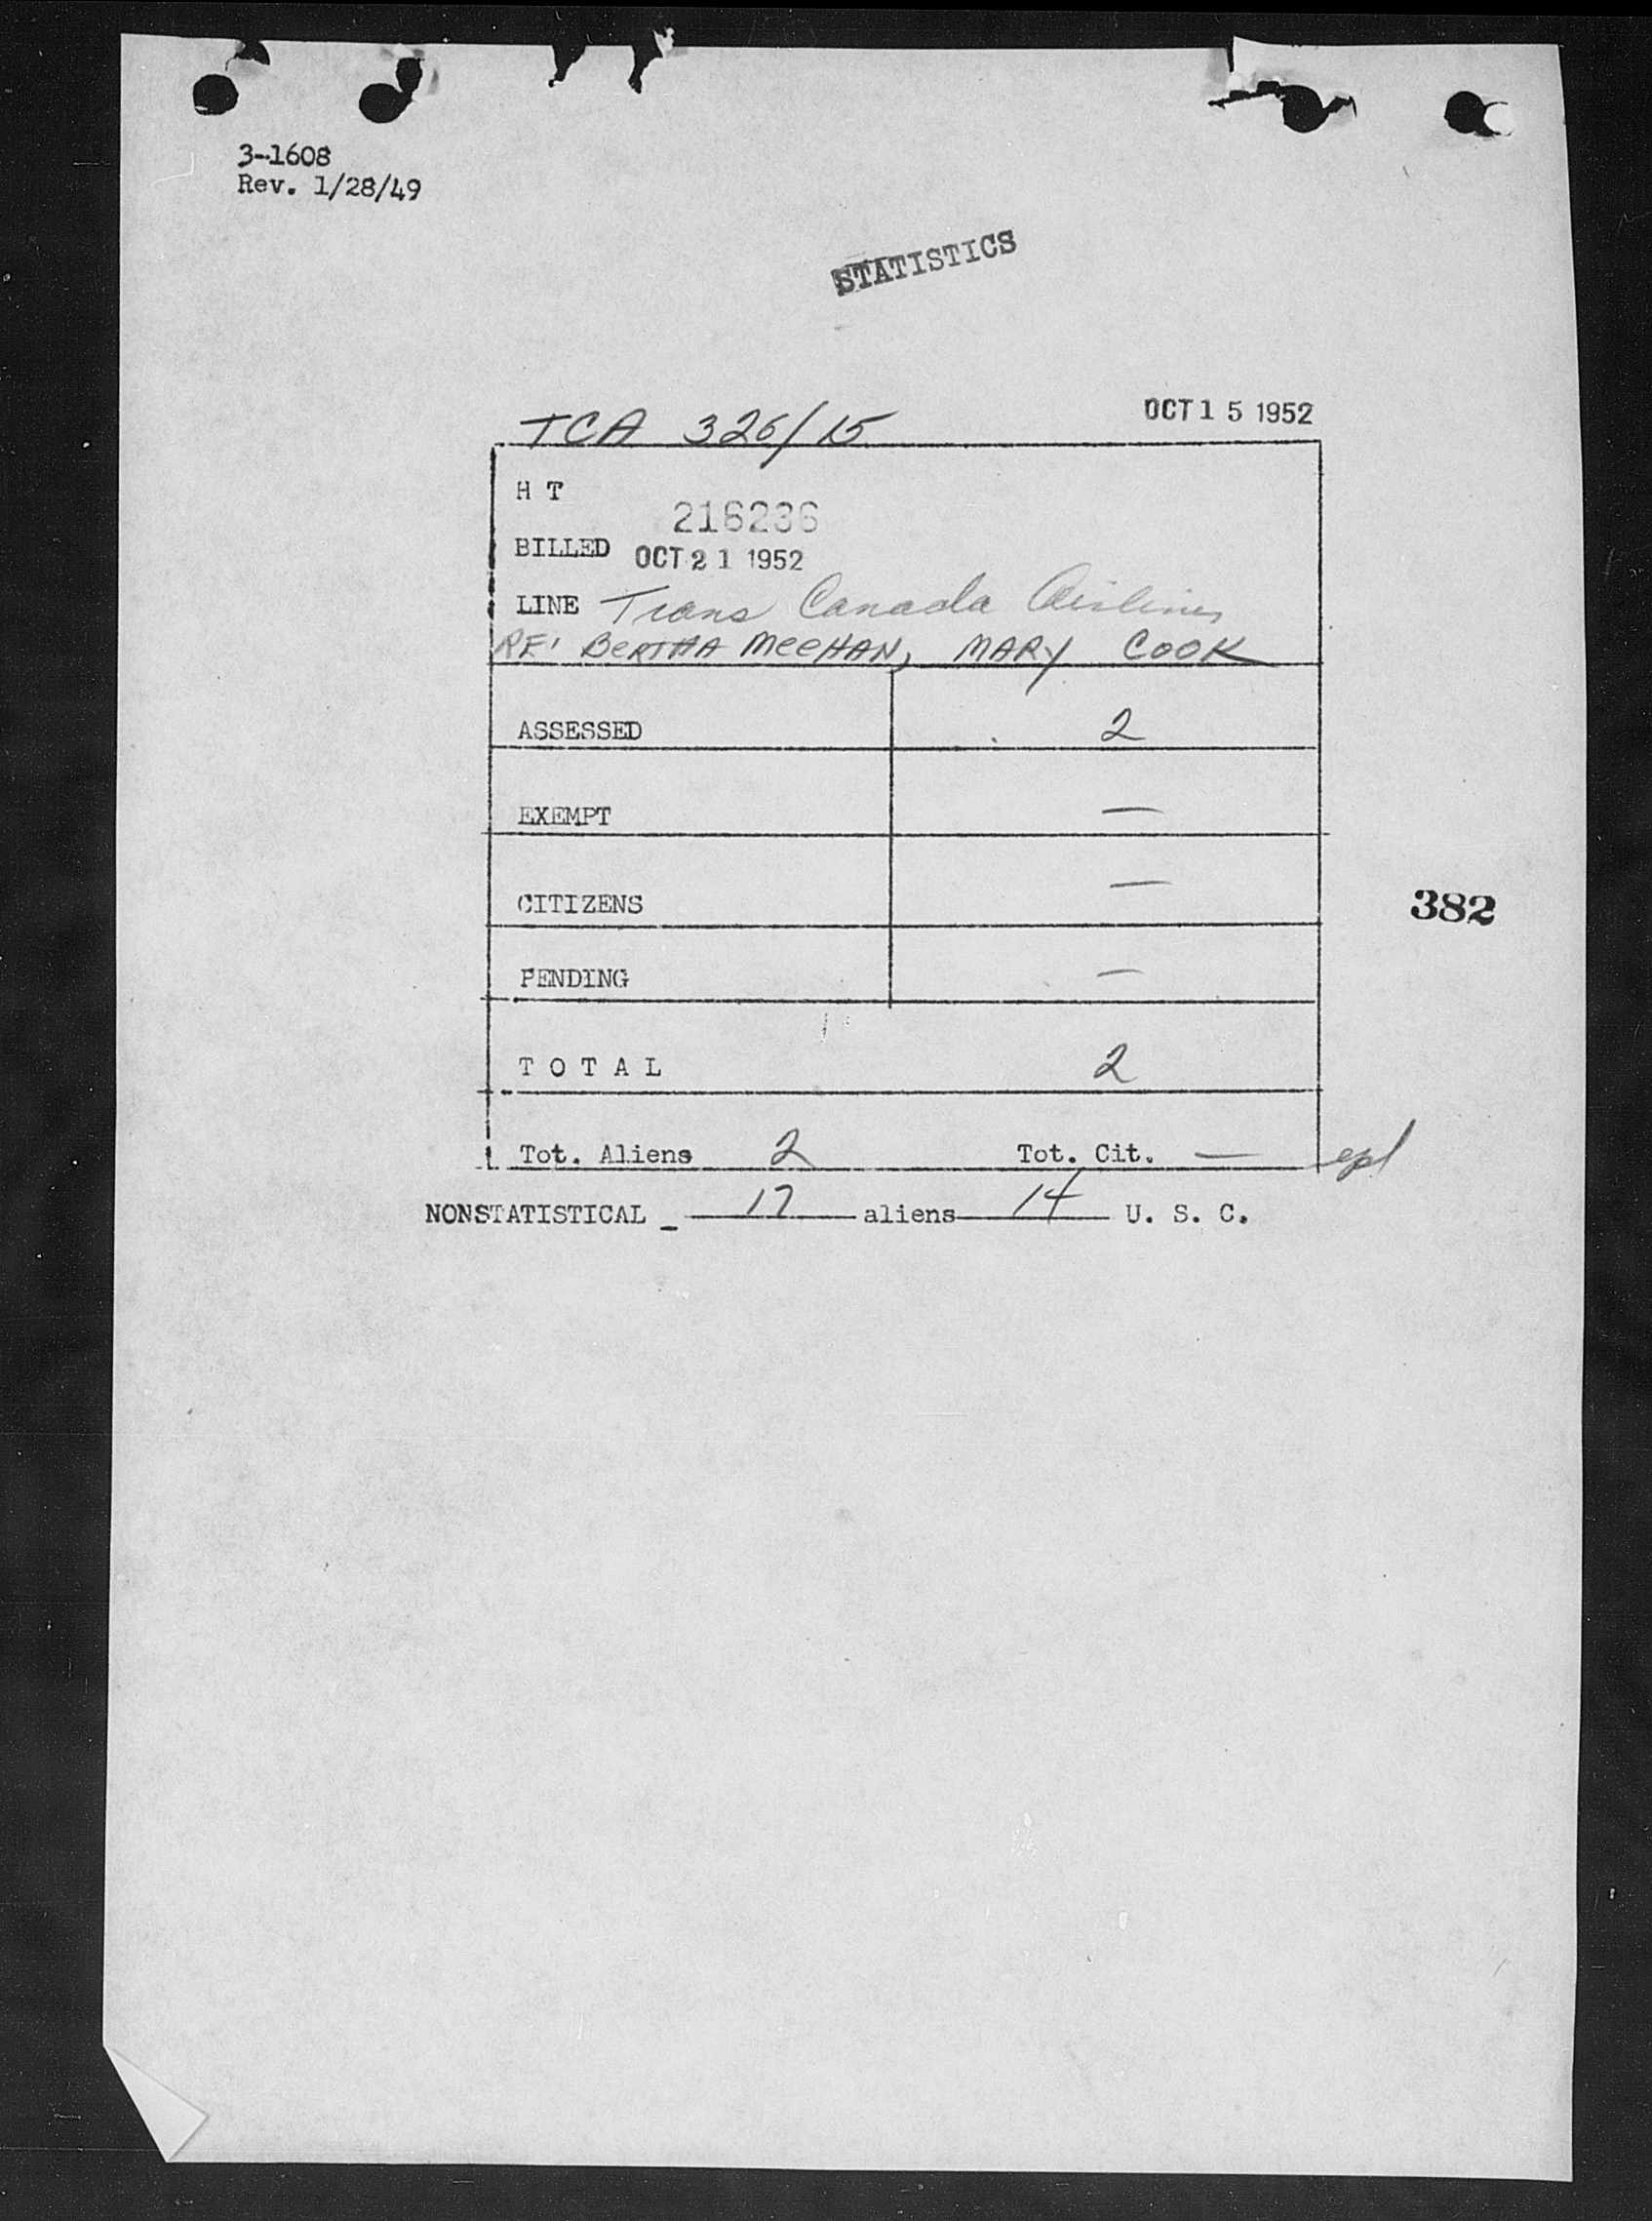 3-1608
Rev. 1/28/49
STATISTICS
TCA 326/15 OCT 15 1952
H T
216236
BILLED OCT 21 1952
LINE Trans Canada Airlines
RE: BERTHA MEEHAN, MARY COOK
ASSESSED 2
EXEMPT —
CITIZENS —
382
PENDING —
T O T A L 2
Tot. Aliens 2 Tot. Cit. —
NONSTATISTICAL - 17 aliens 14 U. S. C.